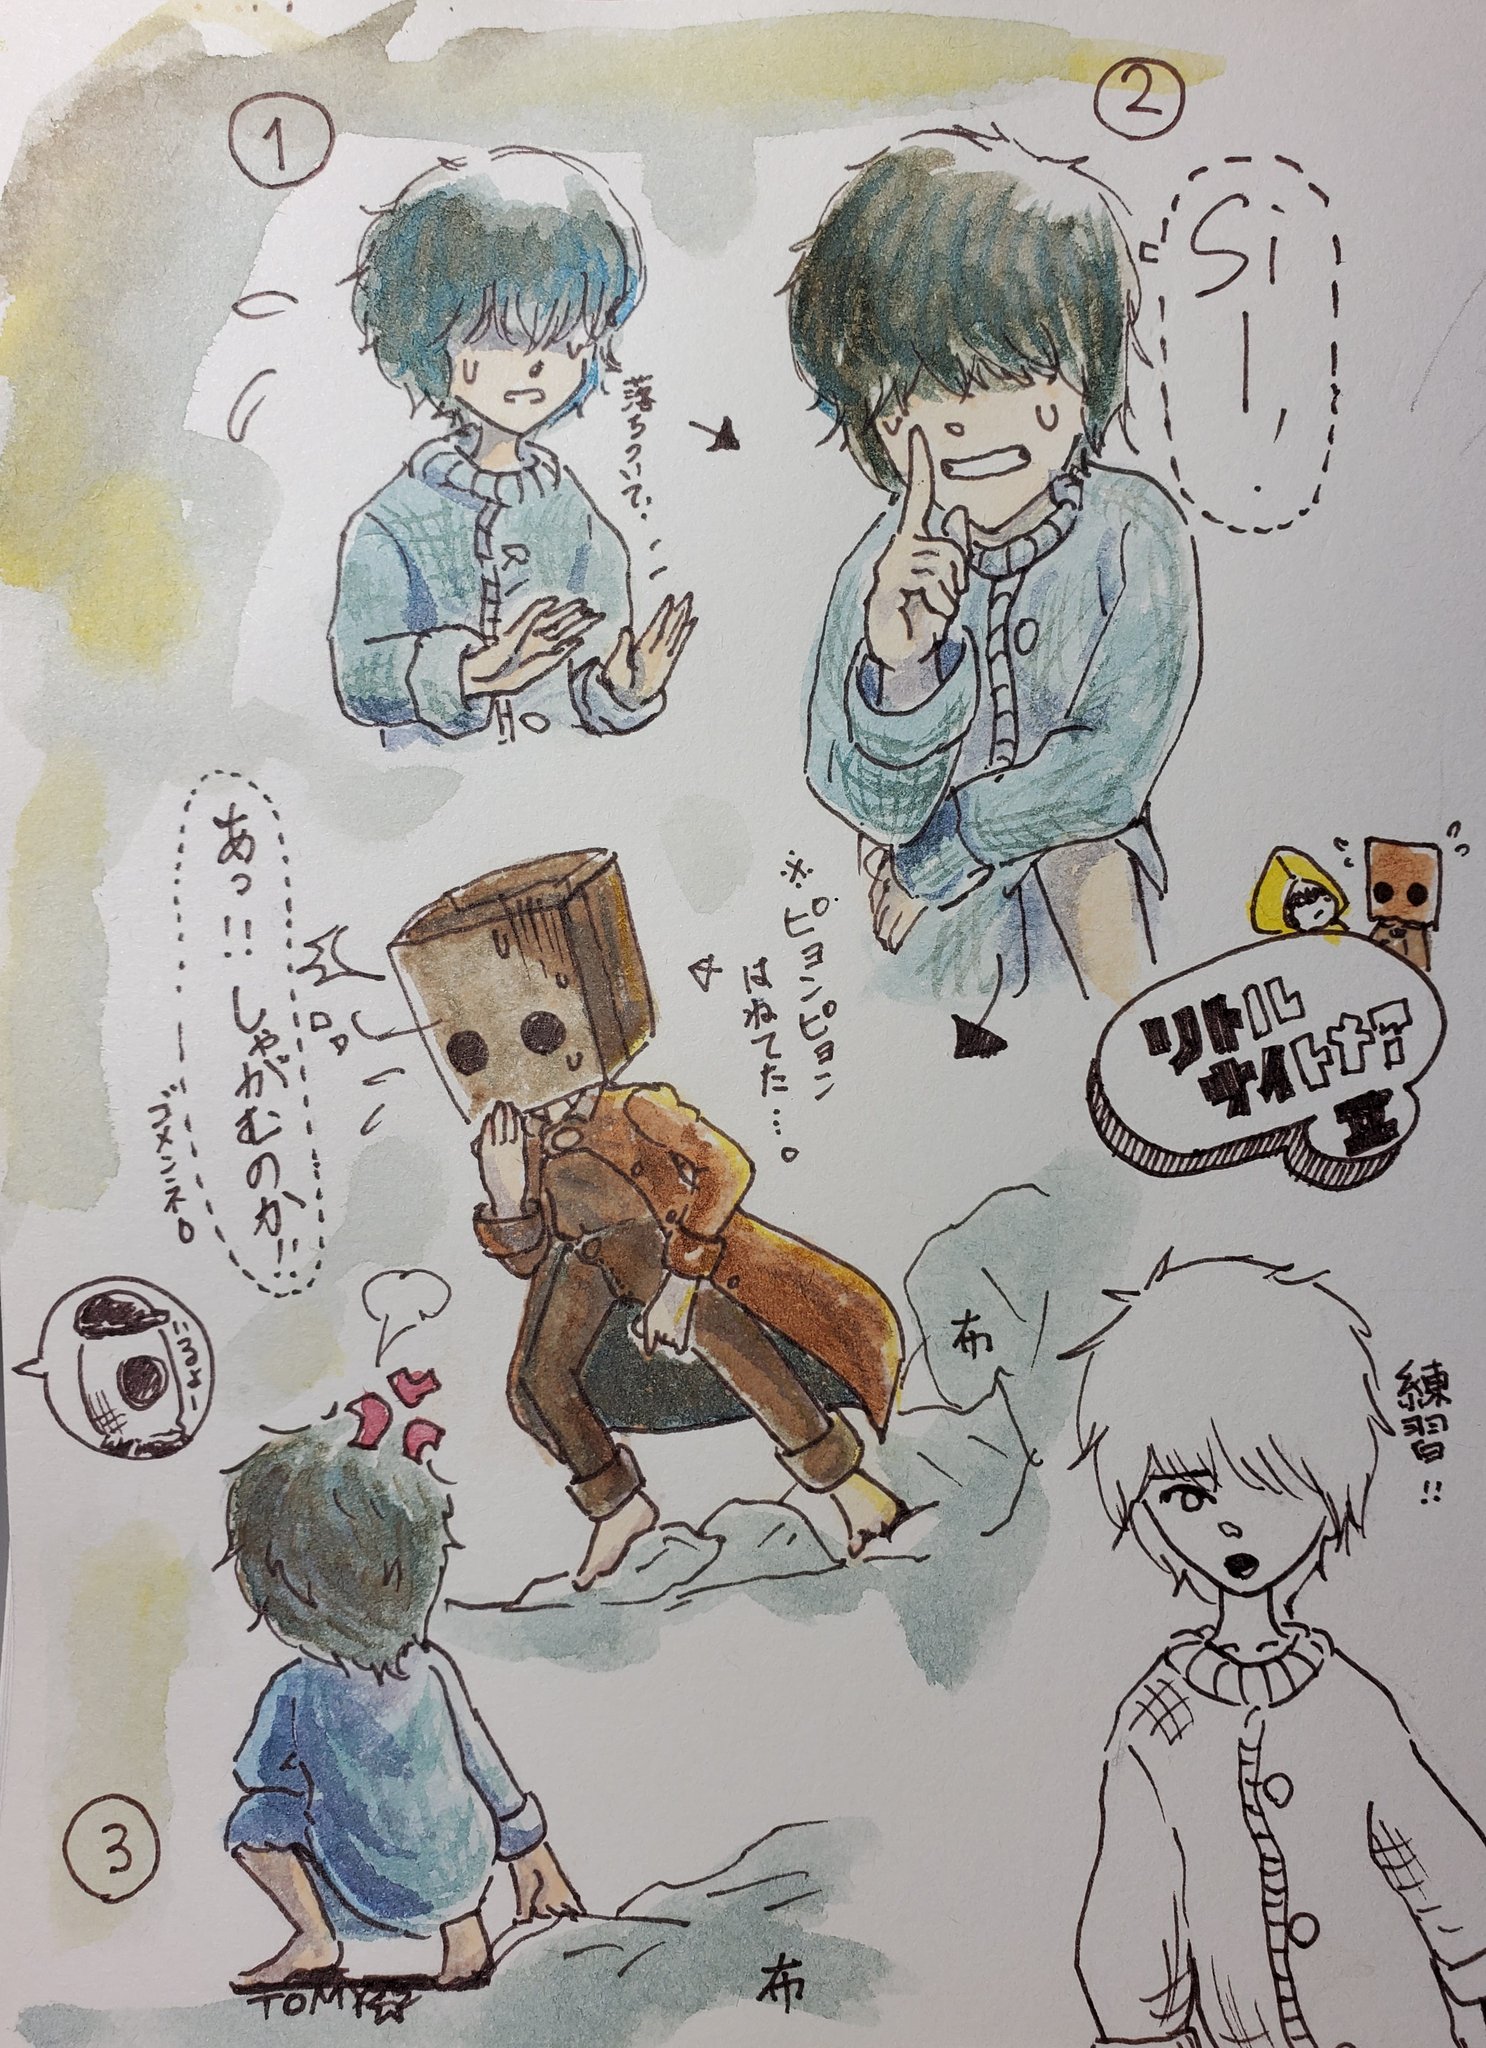 ①
落ちついて、、
②
Si
ー,
.
※ピョンピョン
はねてた…。
あっ!!しゃがむのか!!
・・・・ー
ゴメンネ。
リトル
ナイトメア
II
布
練習!!
③
布
TOMY☆